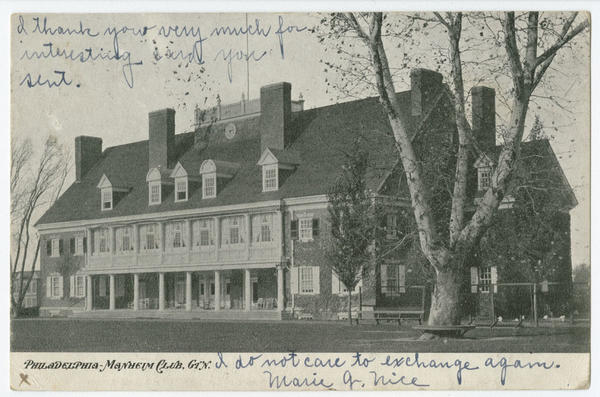 I thank you very much for
interesting card you
sent.
PHILADELPHIA-MANHEIM CLUB, GTN.
I do not care to exchange again.
Marie G. Nice